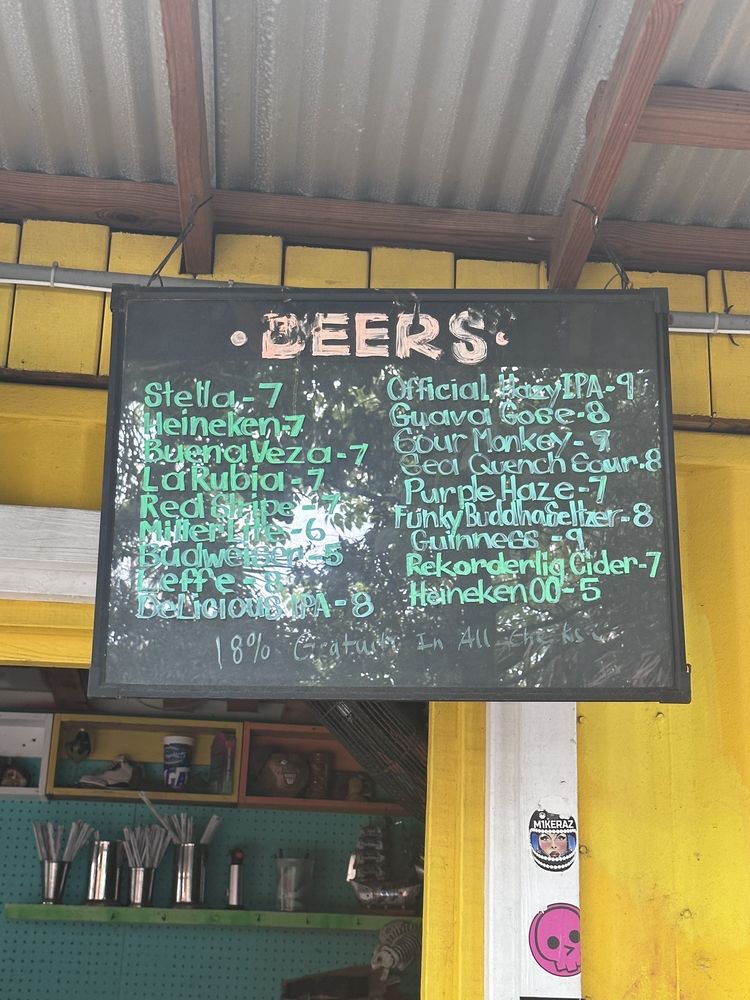 • BEERS •
Stella - 7
Heineken - 7
Buena Veza - 7
La Rubia - 7
Red Stripe - 7
Miller Lite - 6
Budweiser - 5
Leffe - 8
DeLicious IPA - 8
Official Hazy IPA - 9
Guava Gose - 8
Sour Monkey - 9
Sea Quench Sour - 8
Purple Haze - 7
Funky Buddha Seltzer - 8
Guinness - 9
Rekorderlig Cider - 7
Heineken 00 - 5
18% Gratuity In All Checks
M1KERAZ